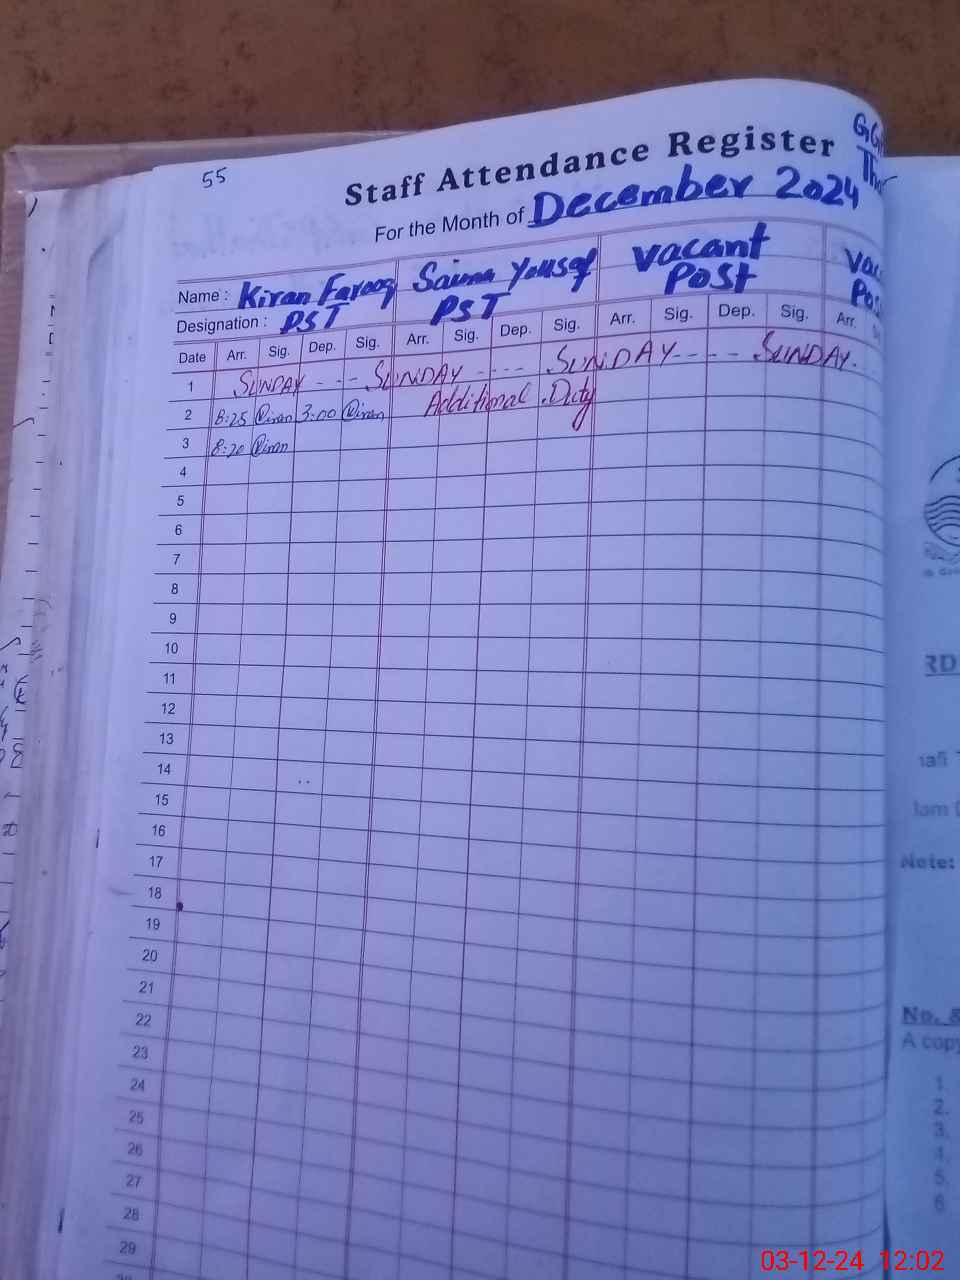 55
Staff Attendance Register
For the Month of December 2024
Name : Kiran Farooq Saima Yousaf Vacant Post
Designation : PST PST
Date Arr. Sig. Dep. Sig. Arr. Sig. Dep. Sig. Arr. Sig. Dep. Sig. Arr.
1 SUNDAY - - - SUNDAY - - - - SUNDAY - - - - SUNDAY.
2 8:25 Kiran 3:00 Kiran Additional Duty
3 8:20 Kiran
4
5
6
7
8
9
10
11
12
13
14
15
16
17
18
19
20
21
22
23
24
25
26
27
28
29
Note:
No. &
A copy
1.
2.
3.
4.
5.
6
03-12-24 12:02